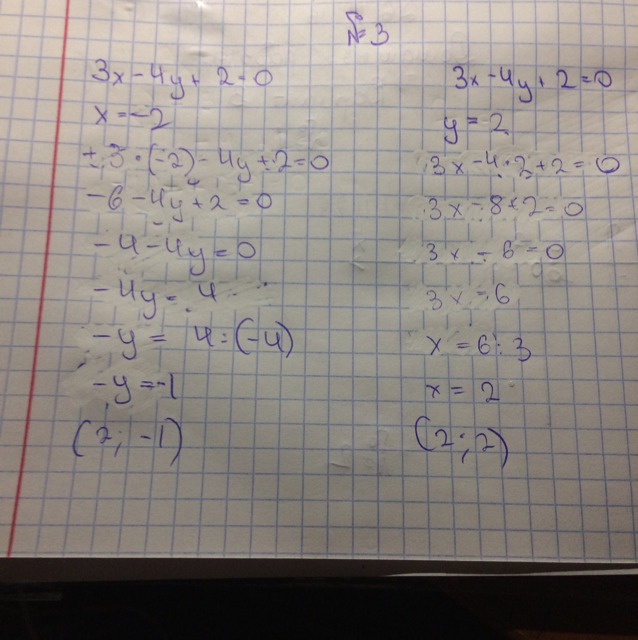 №3
3x - 4y + 2 = 0
x = -2
3 · (-2) - 4y + 2 = 0
-6 - 4y + 2 = 0
-4 - 4y = 0
-4y = 4
-y = 4 : (-4)
-y = -1
(2; -1)
3x - 4y + 2 = 0
y = 2
3x - 4 · 2 + 2 = 0
3x - 8 + 2 = 0
3x - 6 = 0
3x = 6
x = 6 : 3
x = 2
(2; 2)